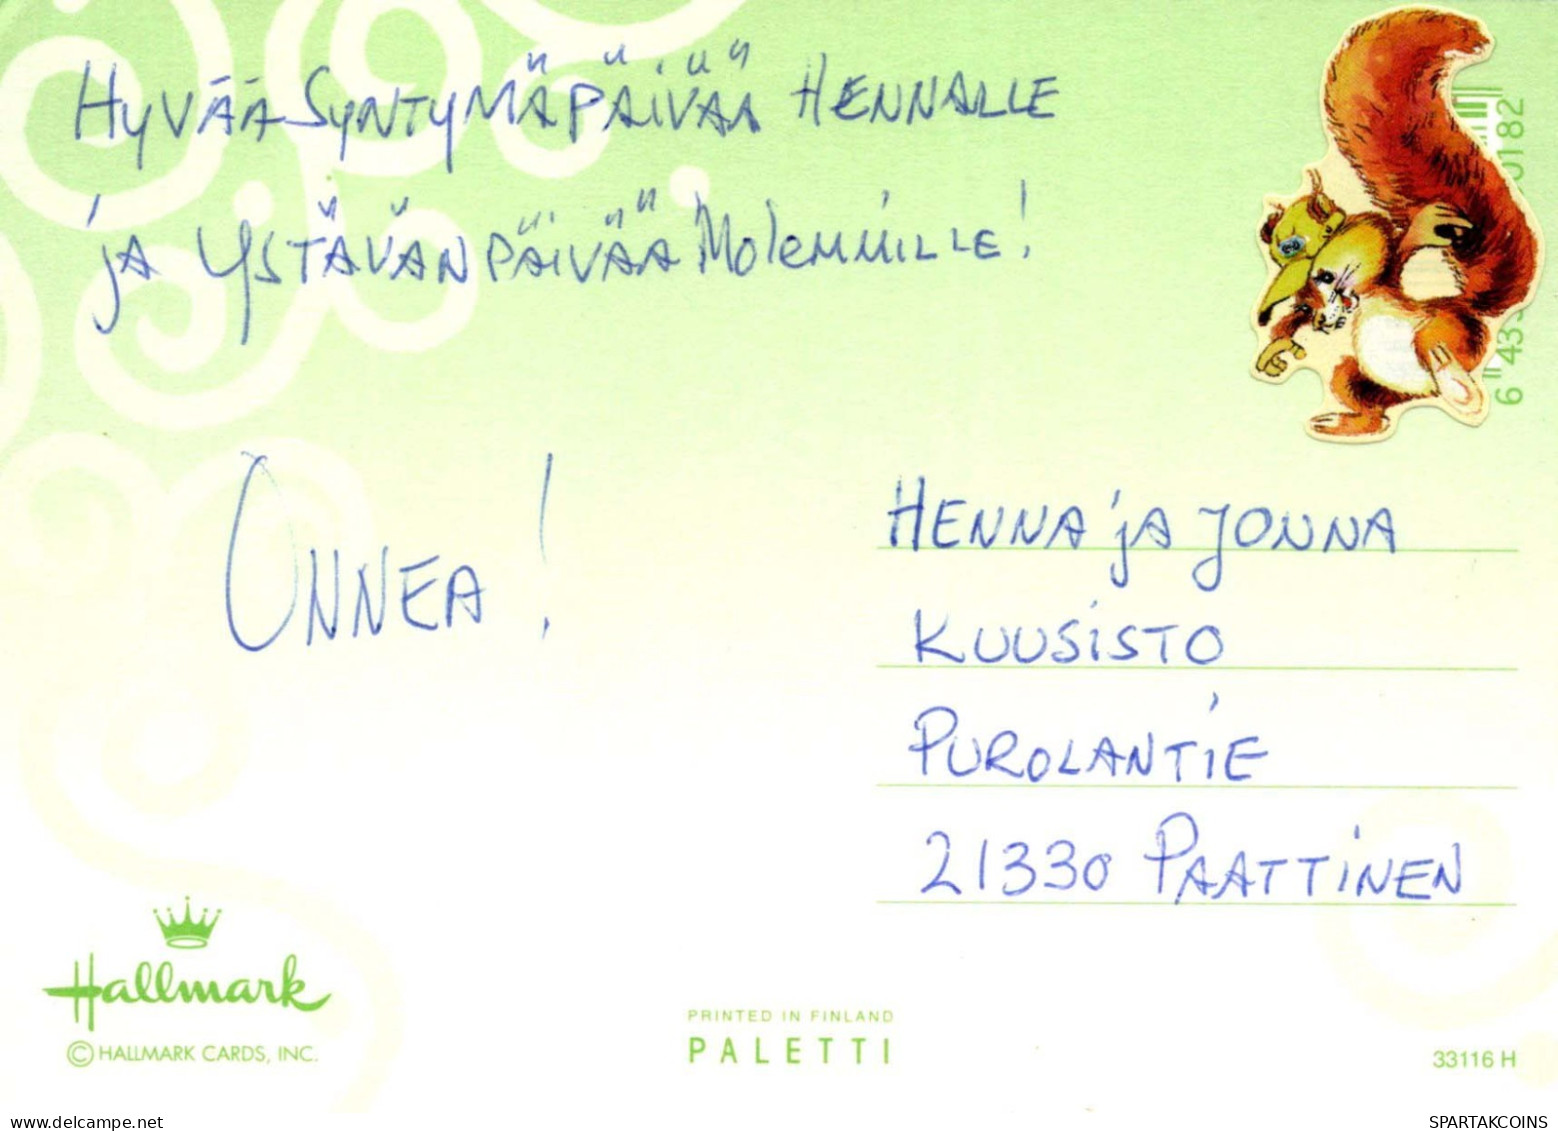 HYVÄÄ SYNTYMÄPÄIVÄÄ HENNALLE
ja YSTÄVÄNPÄIVÄÄ MOLEMMILLE!
ONNEA!
HENNA ja JONNA
KUUSISTO
PUROLANTIE
21330 PAATTINEN
Hallmark
© HALLMARK CARDS, INC.
PRINTED IN FINLAND
PALETTI
33116 H
SPARTAKCOINS